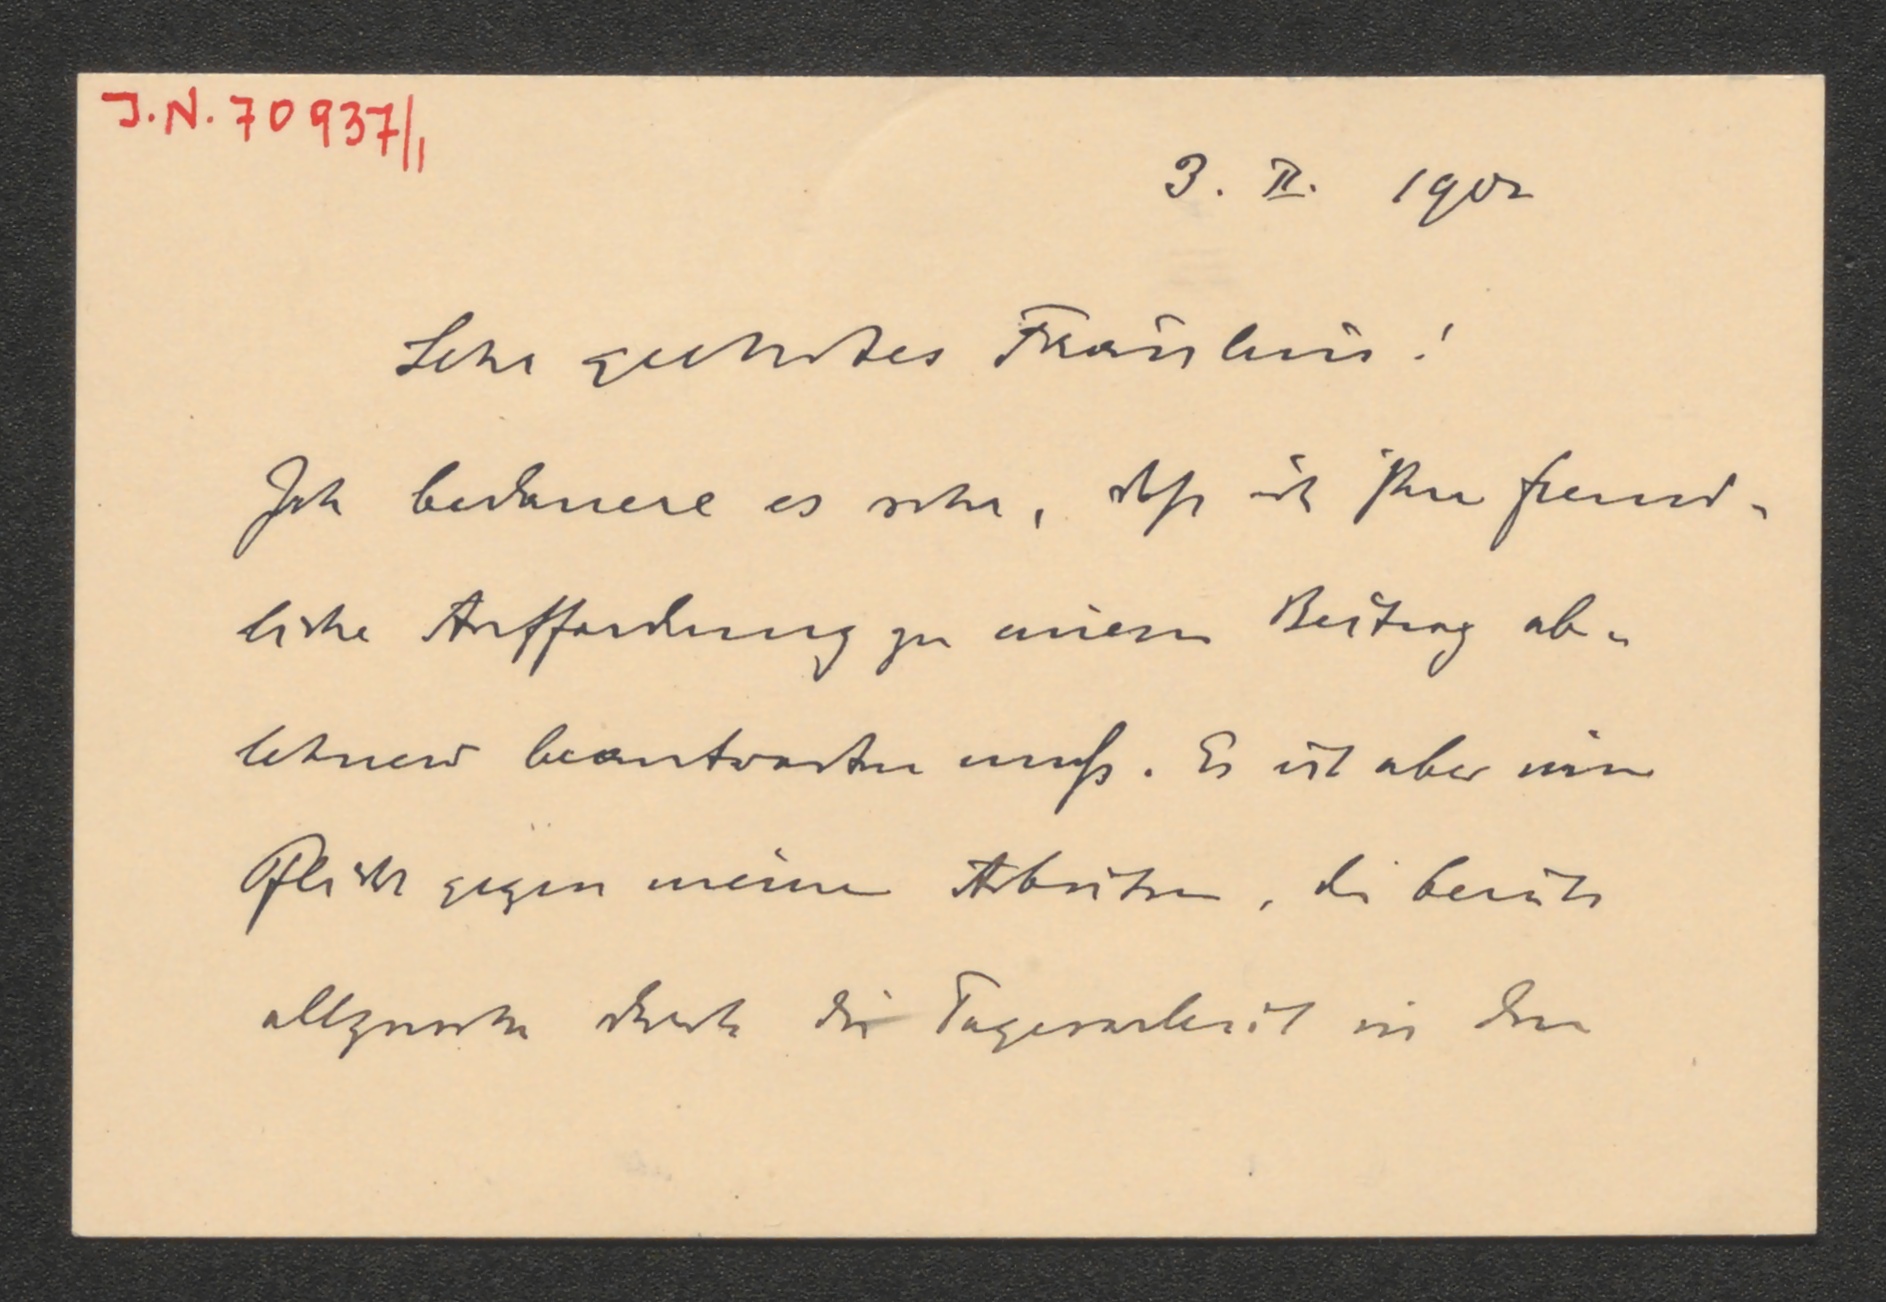 J.N. 70937/1
3. II. 1902
Sehr geehrtes Fräulein!
Ich bedauere es sehr, dass ich Ihre freund-
liche Aufforderung zu einem Beitrag ab-
lehnend beantworten muß. Es ist aber eine
Pflicht gegen meine Arbeiten, die bereits
allzusehr durch die Tagesarbeit in den